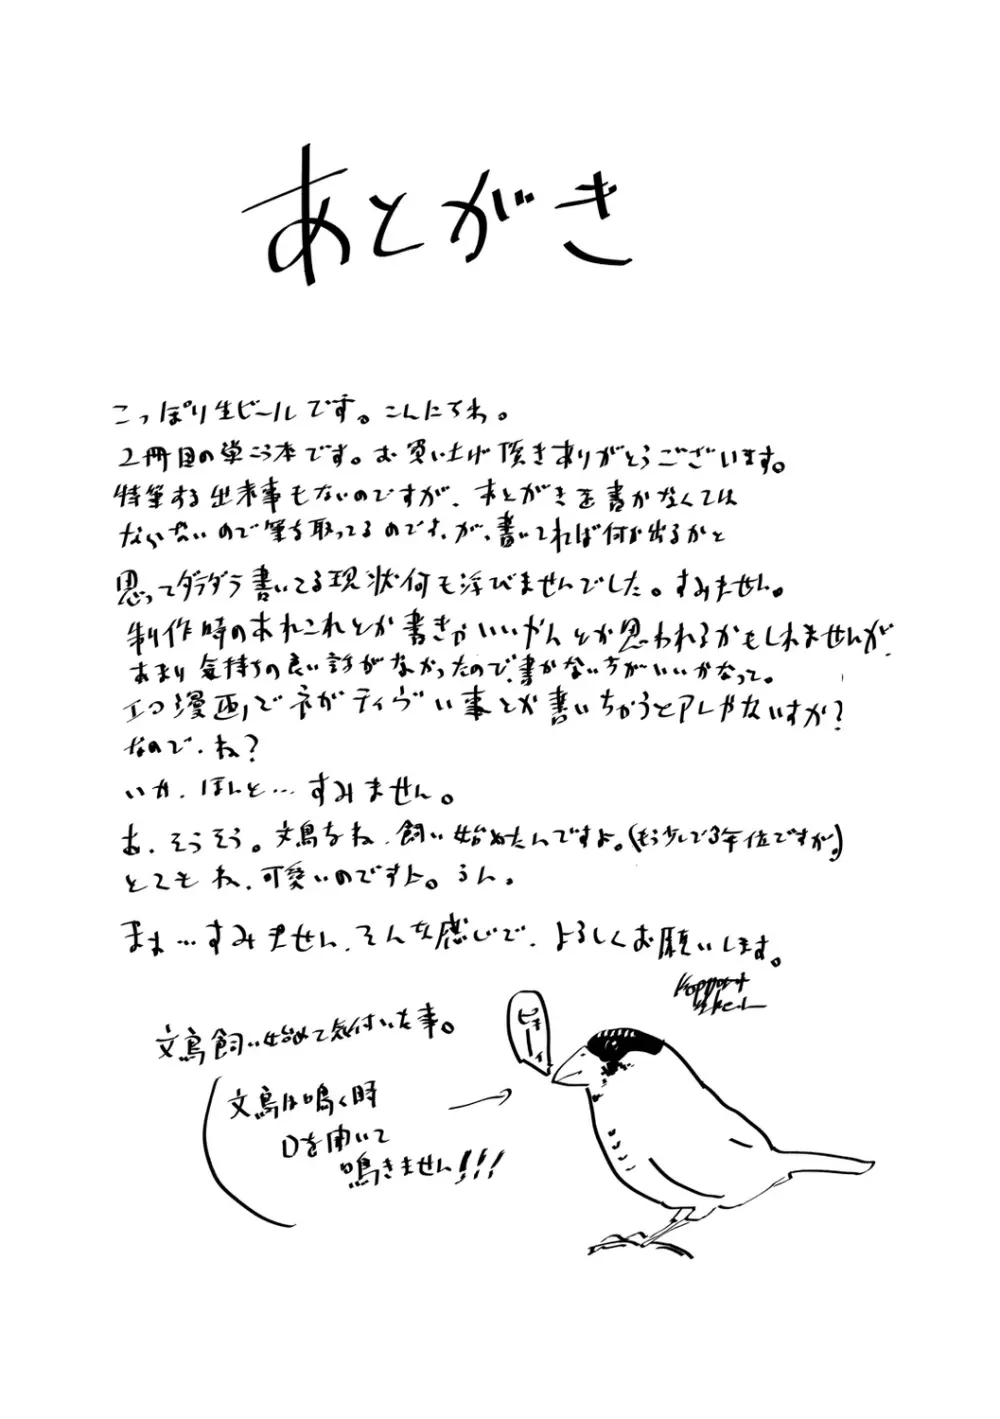 あとがき
こっぽり生ビールです。こんにちわ。
2冊目の単こう本です。お買い上げ頂きありがとうございます。
特筆する出来事もないのですが、あとがきを書かなくては
ならないので筆を取ってるのです、が、書いてれば何か出るかと
思ってダラダラ書いてる現状何も浮びませんでした。すみません。
制作時のあれこれとか書きゃいいやんとか思われるかもしれませんが、
あまり気持ちの良い話がなかったので、書かない方がいいかなって。
エロ漫画でネガティヴい事とか書いちゃうとアレやないすか?
なので、ね?
いや、ほんと…すみません。
あ、そうそう。文鳥をね、飼い始めたんですよ。(もう少しで3年位ですが。)
とてもね、可愛いのですよ。うん。
まぁ…すみません、そんな感じで、よろしくお願いします。
文鳥飼い始めて気付いた事。
ピョーィ
文鳥は鳴く時
口を開いて
鳴きません!!!